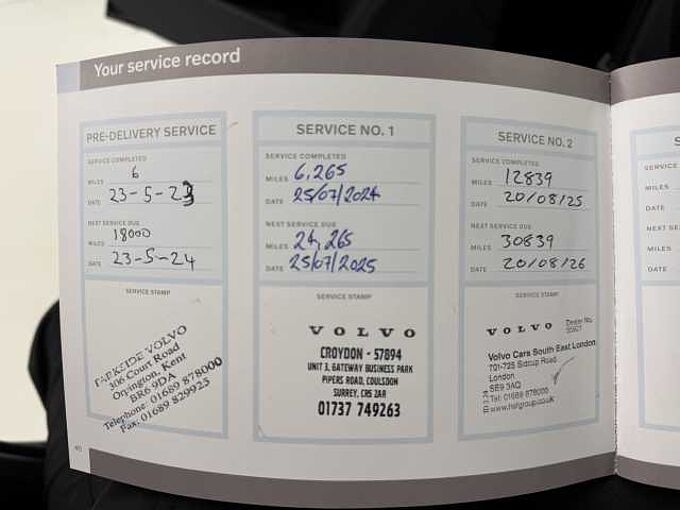 Your service record
PRE-DELIVERY SERVICE
SERVICE COMPLETED
MILES 6
DATE 23-5-23
NEXT SERVICE DUE
MILES 18000
DATE 23-5-24
SERVICE STAMP
PARKSIDE VOLVO
306 Court Road
Orpington, Kent
BR6 9DA
Telephone: 01689 878000
Fax: 01689 829925
SERVICE NO. 1
SERVICE COMPLETED
MILES 6,265
DATE 25/07/2024
NEXT SERVICE DUE
MILES 24,265
DATE 25/07/2025
SERVICE STAMP
VOLVO
CROYDON - 57894
UNIT 3, GATEWAY BUSINESS PARK
PIPERS ROAD, COULSDON
SURREY, CR5 2AR
01737 749263
SERVICE NO. 2
SERVICE COMPLETED
MILES 12839
DATE 20/08/25
NEXT SERVICE DUE
MILES 30839
DATE 20/08/26
SERVICE STAMP
VOLVO Dealer No.
Volvo Cars South East London
701-725 Sidcup Road
London
SE9 3AQ
Tel: 01689 878000
www.hslgroup.co.uk
S
SERVICE
MILES
DATE
NEXT SE
MILES
DATE